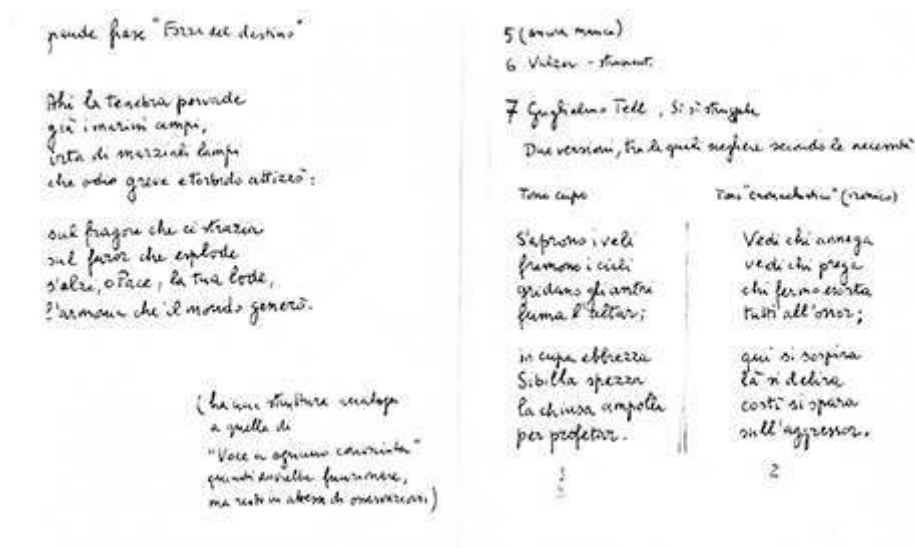 grande frase "Forza del destino"
Ahi la tenebra pervade
già i marini campi,
irta di marziali lampi
che odio greve e torbido attizzò:
sul fragore che ci strazia
sul furor che esplode
s'alzi, o Pace, la tua lode,
l'armonia che il mondo generò.
(ha una struttura analoga
a quella di
"Voce a ognuno conosciuta"
quindi dovrebbe funzionare,
ma resto in attesa di osservazioni.)
5 (ancora manca)
6 Valzer - strument.
7 Guglielmo Tell, Si si strugge
Due versioni, tra le quali scegliere secondo le necessità
Tono cupo
S'aprono i veli
fremono i cieli
gridano gli antri
fuma l'altar;
in cupa ebbrezza
Sibilla spezza
la chiusa ampolla
per profetar.
1
Tono (ironico)
Vedi chi annega
vedi chi prega
chi fermo esorta
tutti all'onor;
qui si sospira
là si delira
costì si spara
sull'aggressor.
2